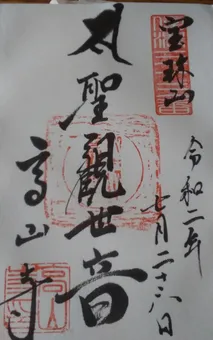 宝珠山
令和二年
七月二十六日
聖観世音
高山寺